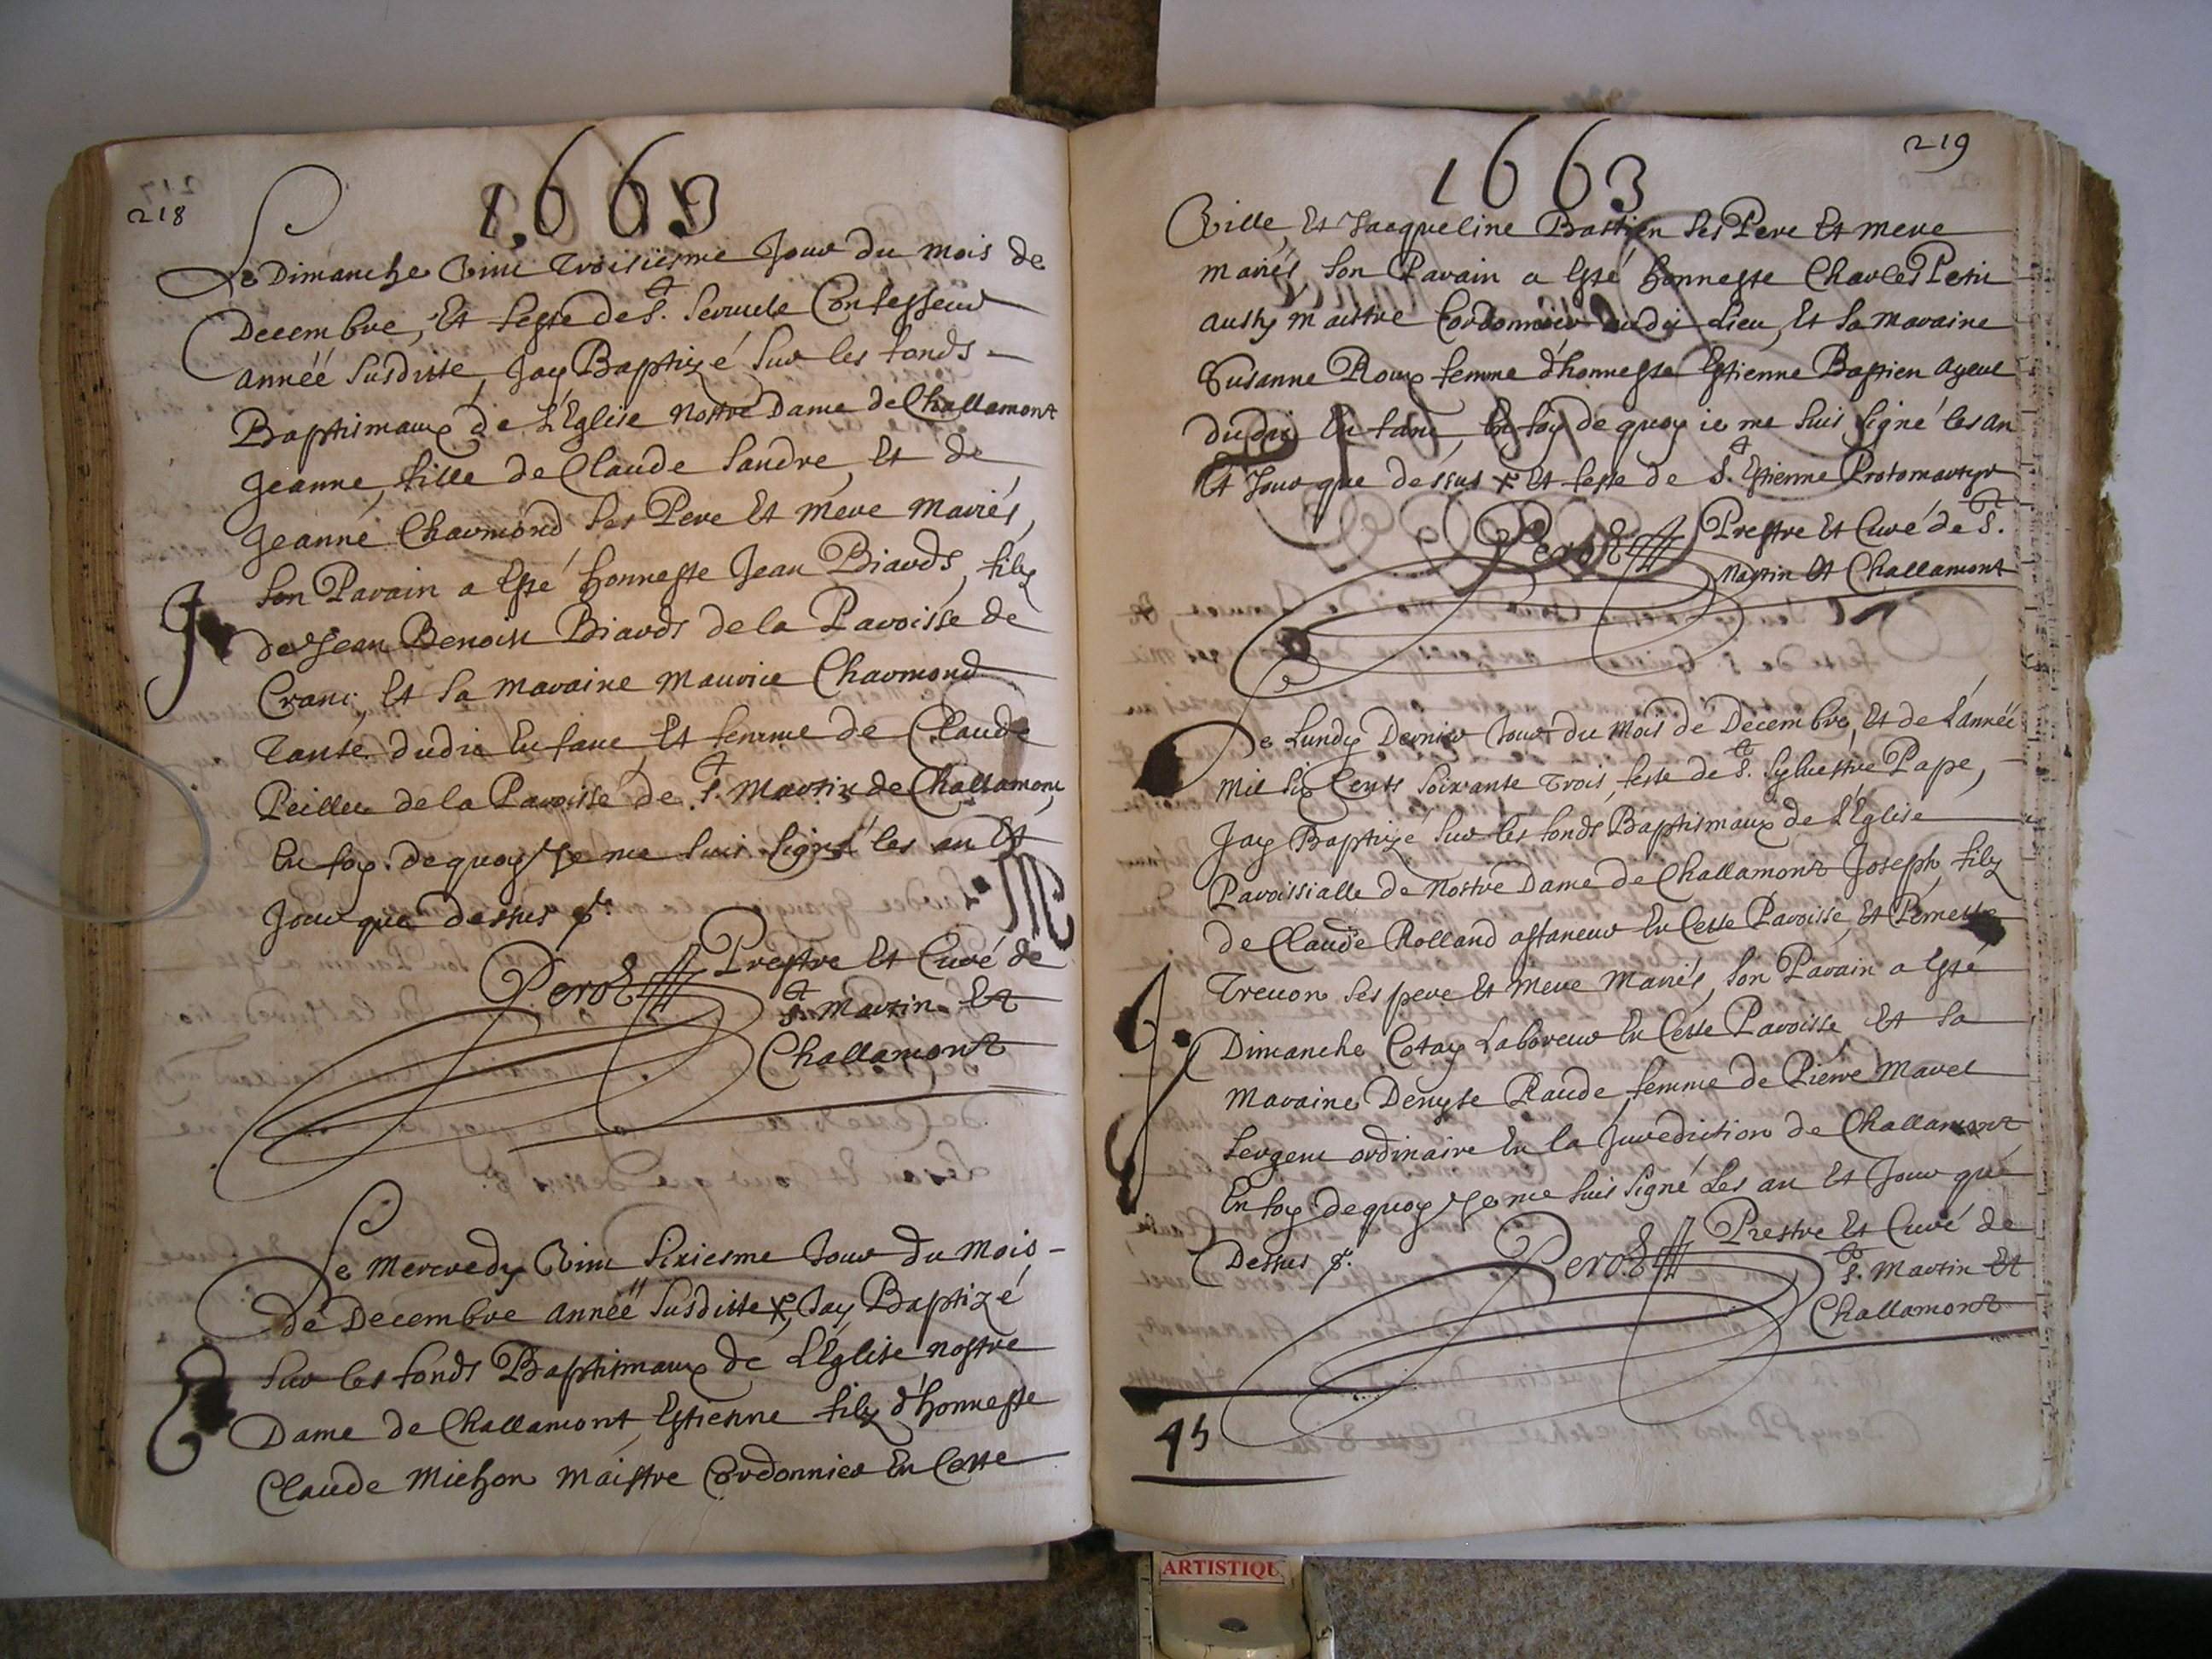 218
1663
Le Dimanche Vint Troisiesme Jour du mois de
Decembre, Et feste de St. Servule Confesseur
année susditte, Jay Baptizé sur les fonds
Baptismaux de L'Eglise Nostre Dame de Challamont
Jeanne, fille de Claude Sandre, Et de
Jeanne Charmond ses Pere Et mere mariés,
son Parain a Esté honneste Jean Biards, filz
de Jean Benoist Biards de la Paroisse de
Crans, Et sa maraine maurice Charmond
Tante dudit Enfant, Et femme de Claude
de la Paroisse de St. Martin de Challamont,
En foy de quoy Je me suis signé les an Et
Jour que dessus
Perot Prestre Et Curé de
St. Martin Et
Challamont
Le Mercredy Vint Sixiesme Jour du Mois
de Decembre année susditte, Jay Baptizé
sur les fonds Baptismaux de L'Eglise nostre
Dame de Challamont Estienne filz d'honneste
Claude Michon Maistre Cordonnier En Cette
219
1663
Ville, Et Jacqueline Bastien ses Pere Et mere
mariés, son Parain a Esté honneste Charles Petit
aussy maistre Cordonnier dudit Lieu, Et sa maraine
Susanne Roux femme d'honneste Estienne Bastien ayeul
dudit Enfant, En foy de quoy ie me suis signé les an
Et Jour que dessus Et feste de St. Estienne Protomartyr
Perot Prestre Et Curé de St.
Martin Et Challamont
Le Lundy Dernier Jour du Mois de Decembre, Et de L'année
mil six Cents soixante Trois, feste de St. Sylvestre Pape,
Jay Baptizé sur les fonds Baptismaux de L'Eglise
Paroissialle de Nostre Dame de Challamont Joseph, filz
de Claude Rolland En Cette Paroisse, Et Pernette
Trevon ses pere Et mere Mariés, son Parain a Esté
Dimanche Cotay Laboreur En Cette Paroisse Et sa
Maraine Denyse Raude, femme de Pierre Marel
sergent ordinaire En la Jurediction de Challamont
En foy de quoy Je me suis signé Les an Et Jour que
Dessus
Perot Prestre Et Curé de
St. Martin Et
Challamont
45
ARTISTIQU